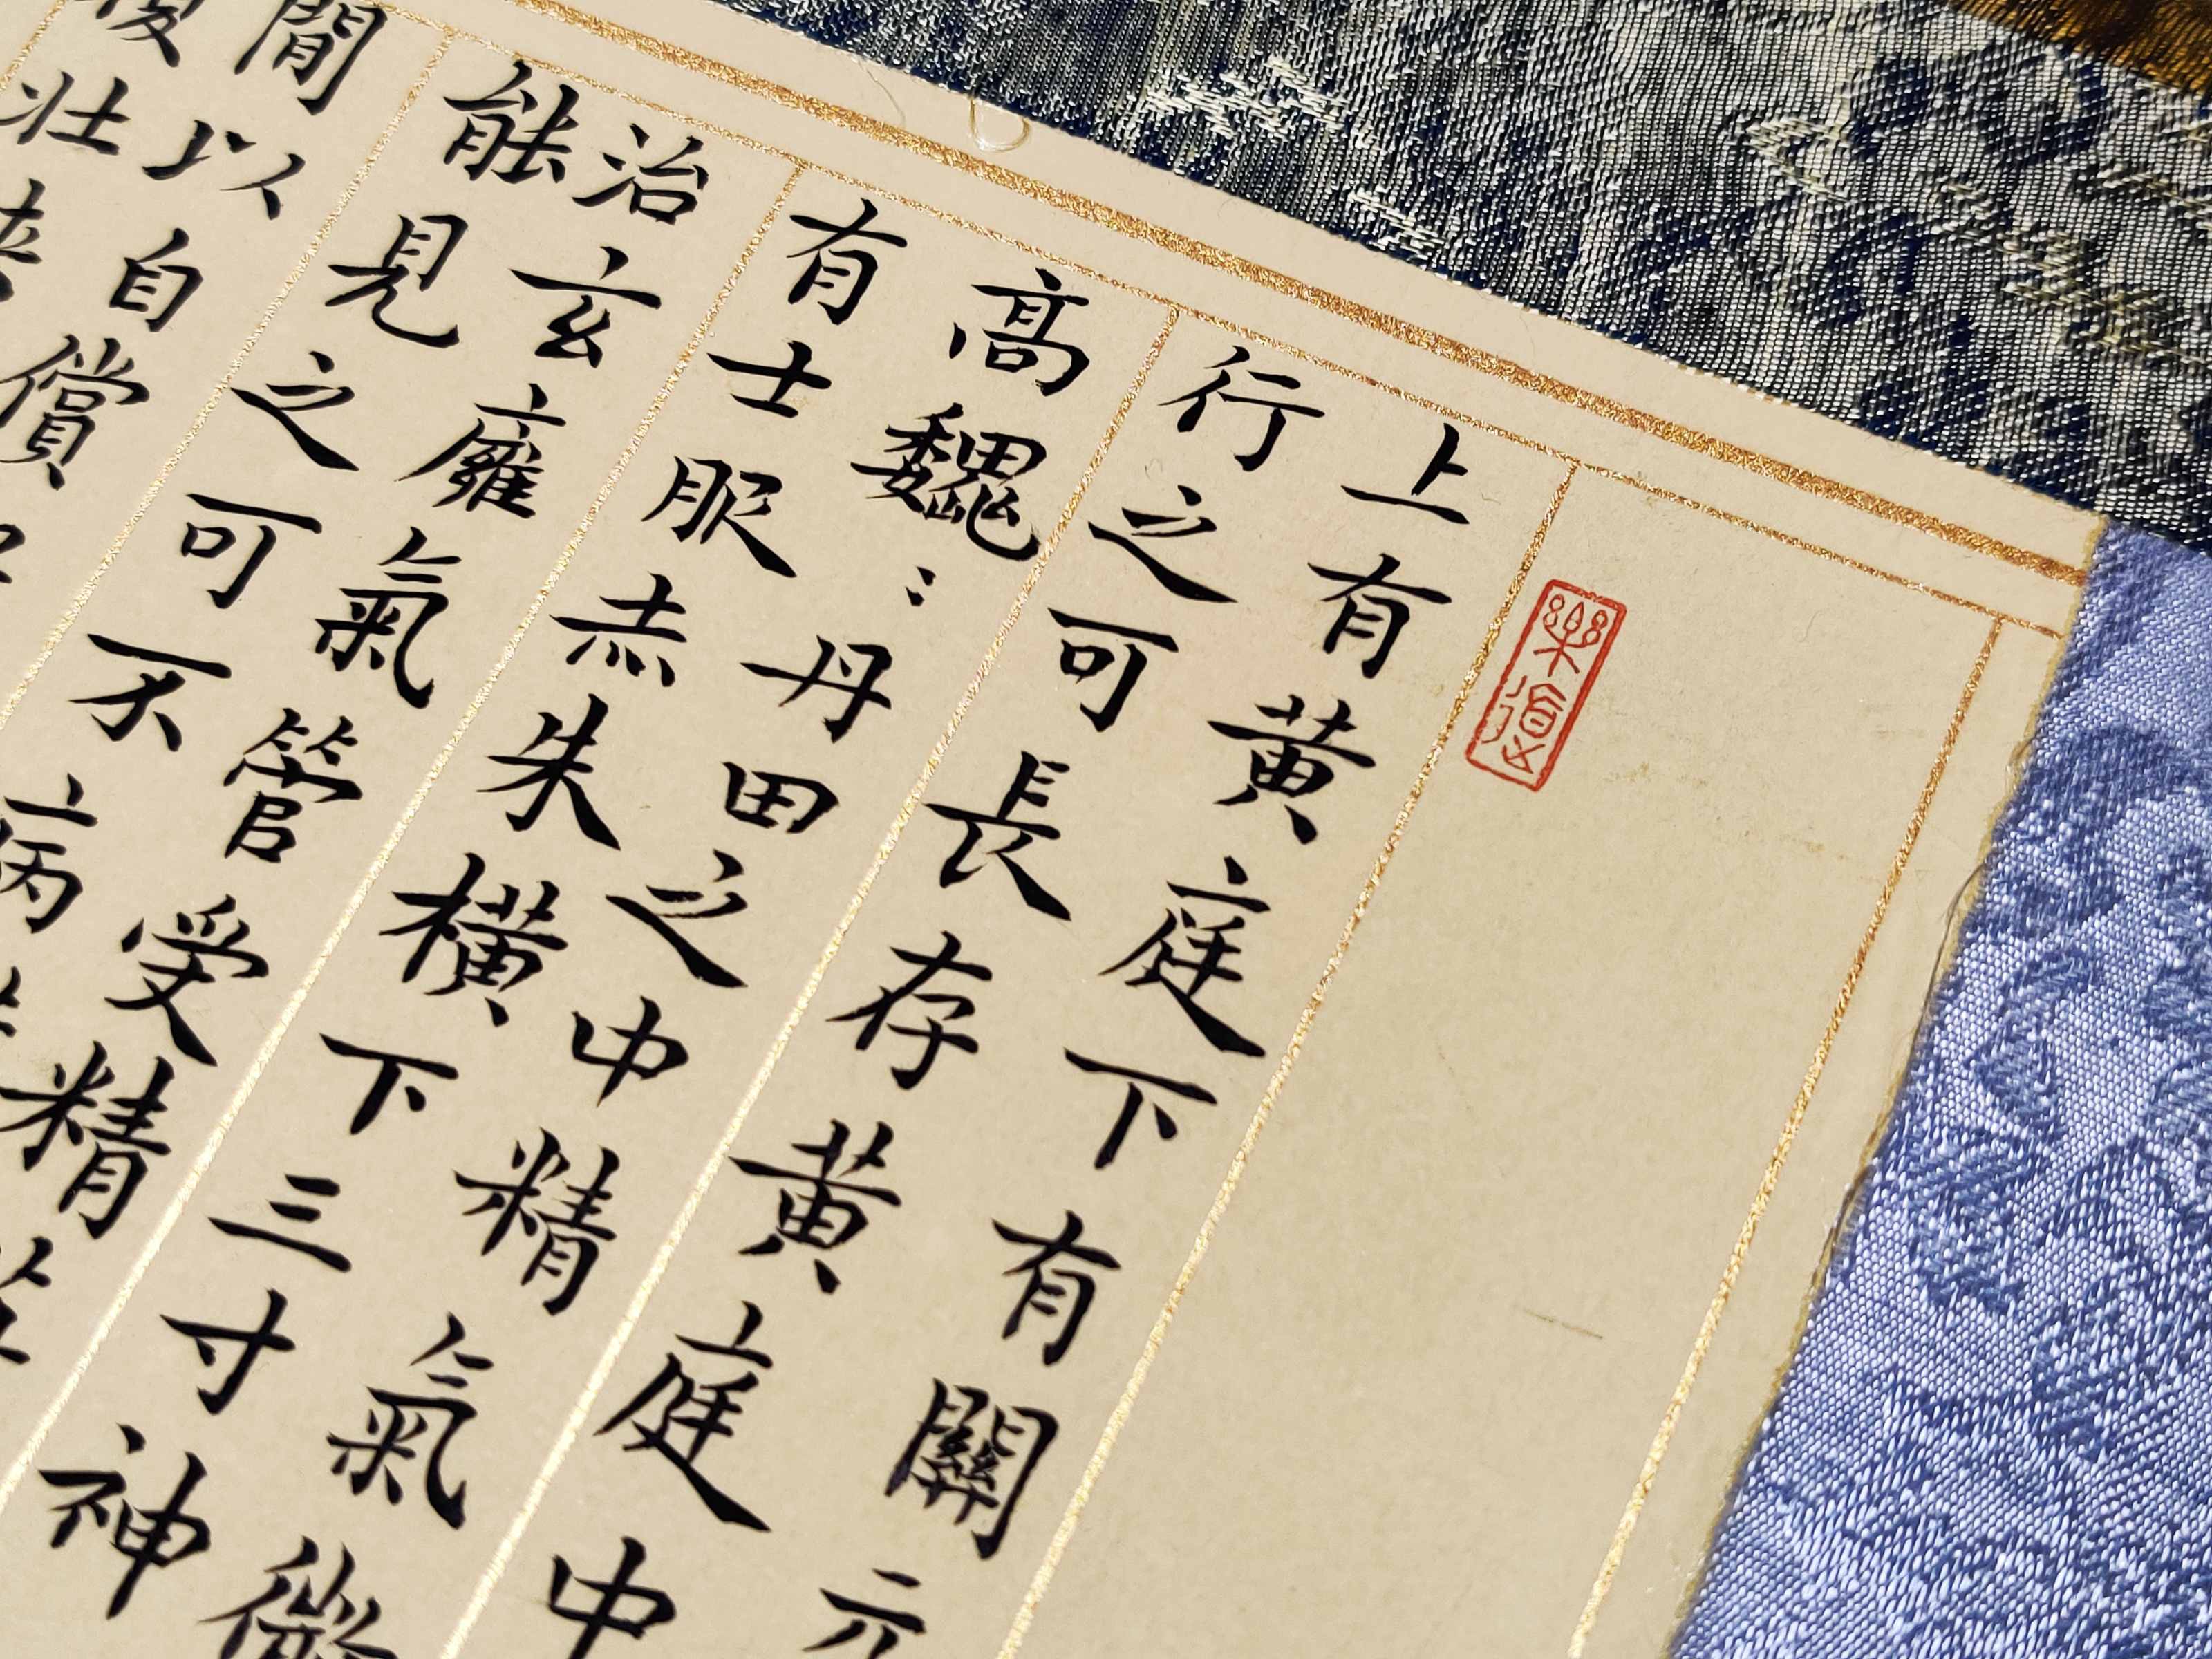 樂道
上有黃庭下有關元
行之可長存黃庭中
髙巍〻丹田之中精氣微
有士服赤朱橫下三寸神
治玄廱氣管受精
能見之可不病
閒以自償
復壯